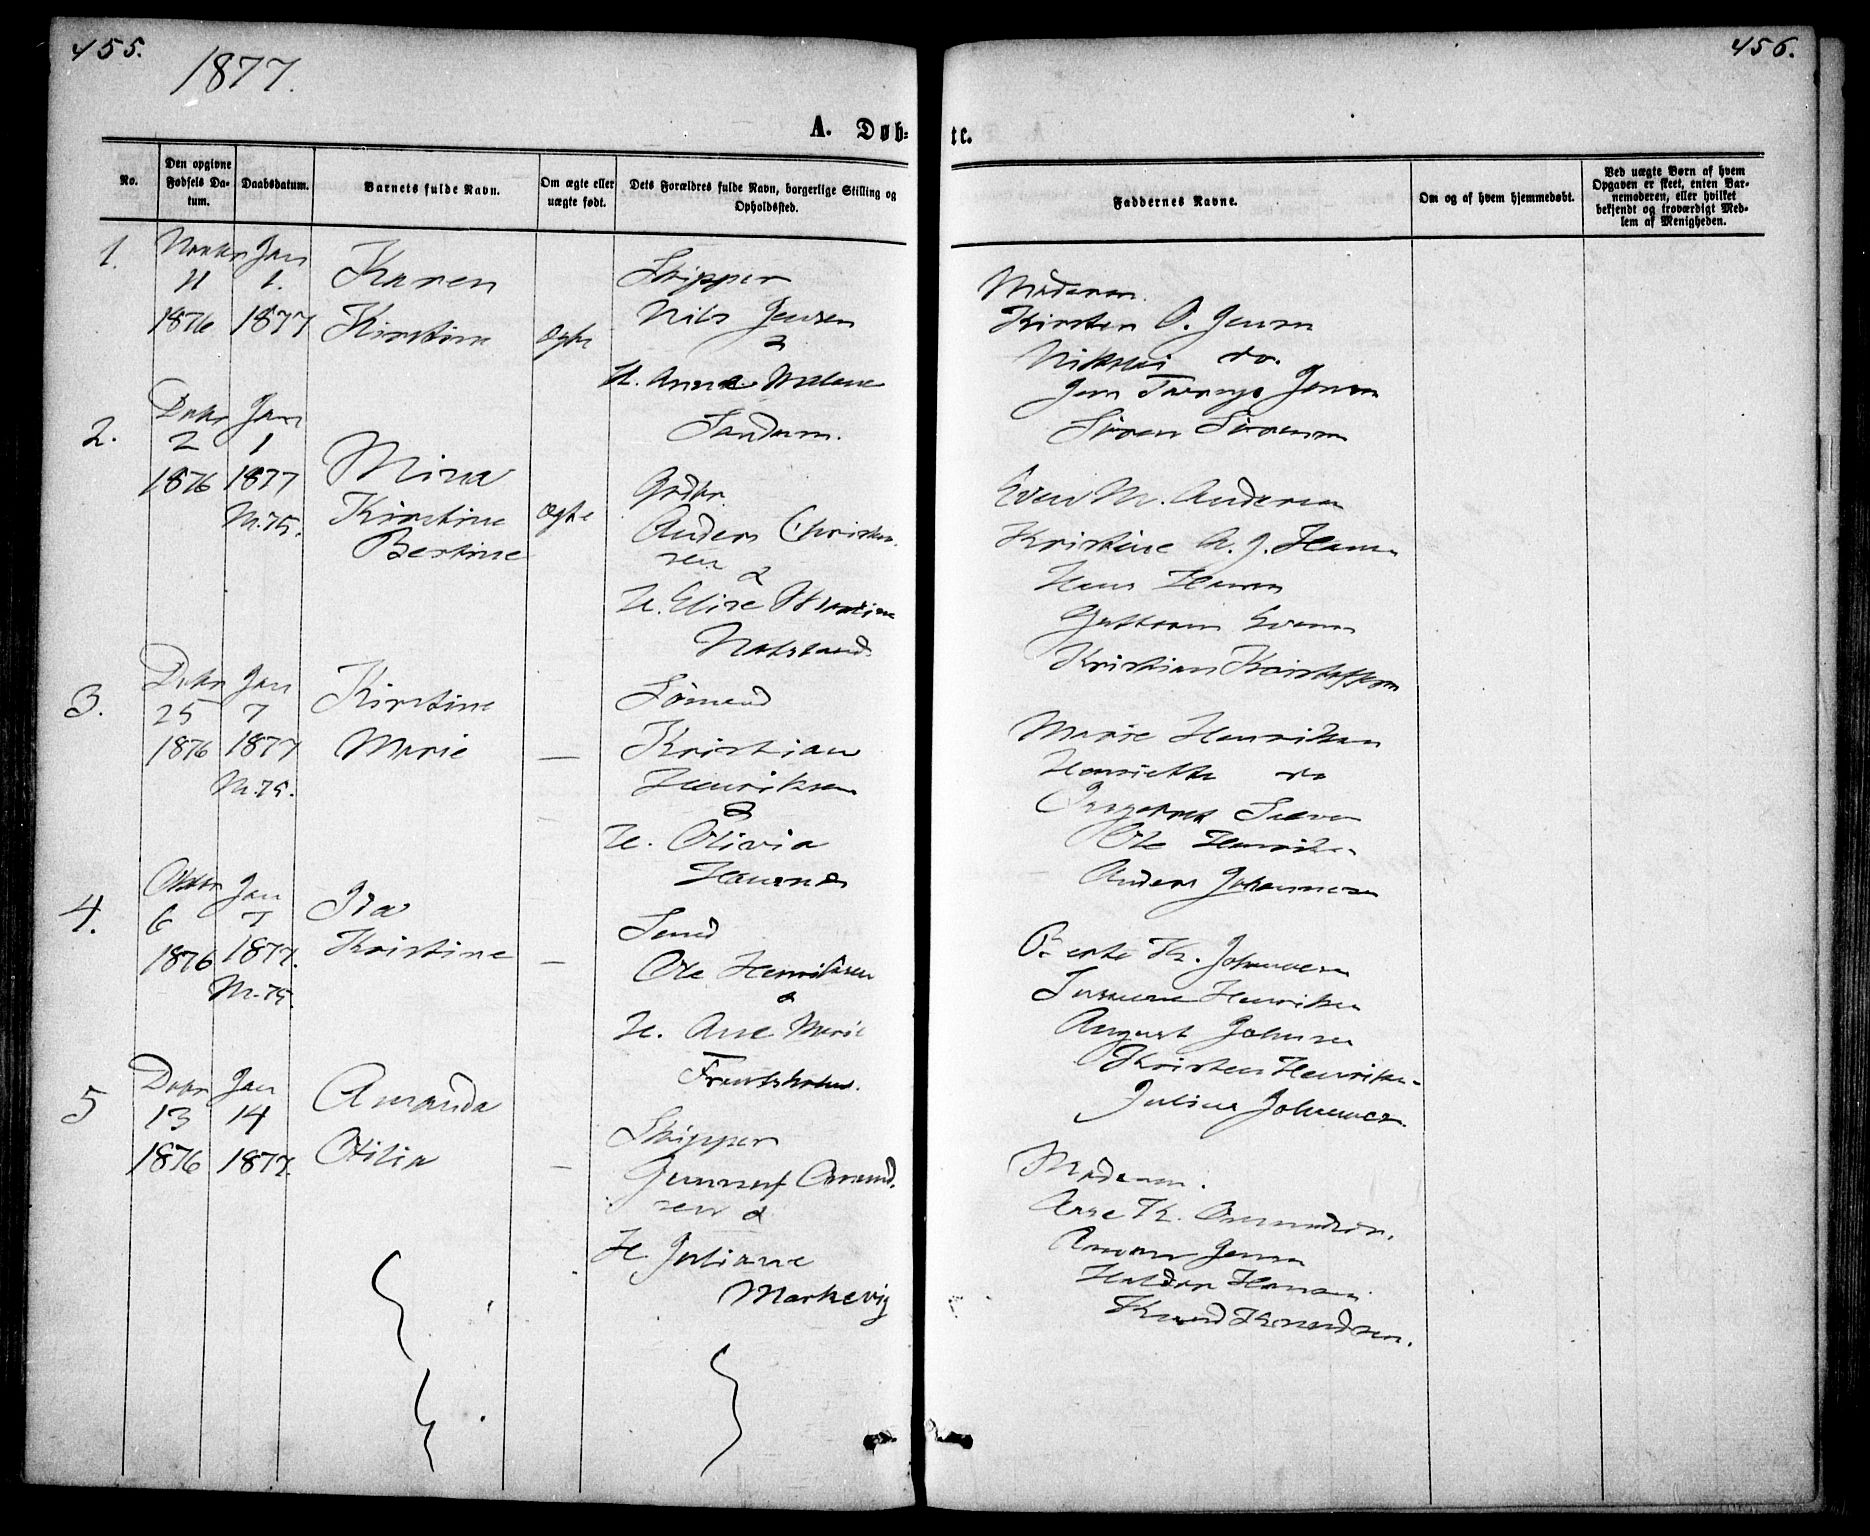 455.
1877.
456.
A. Døb-
te.
No.
Den opgivne Fødsels Da-tum.
Daabsdatum.
Barnets fulde Navn.
Om ægte eller uægte født.
Dets Forældres fulde Navn, borgerlige Stilling og Opholdssted.
Faddernes Navne.
Om og af hvem hjemmedøbt.
Ved uægte Børn af hvem
Opgaven er skeet, enten Bar-
nemoderen, eller hvilket
bekjendt og troværdigt Med-
lem af Menigheden.
1.
Jan
11 1.
1876 1877
Karen
Kirstine
ægte
Skipper
Nils Jensen
&
H. Anne Malene
Sandum.
Moderen.
Kirsten O. Jensen
Nikolai do.
Jens Jensen
Søren Sørensen
2.
Decbr Jan
2 1
1876 1877
M.75.
Mina
Kirstine
Bertine
ægte
Anders Christen-
sen &
H. Elise
Even M. Andersen
Kristine A. J. Hansen
Hans Hansen
Guttorm Evensen
Kristian Kristoffersen
3.
Decbr Jan
25 7
1876 1877
M.75.
Kirstine
Marie
—
Sømand
Kristian
Henriksen
&
H. Olivia
Marie Henriksen
Henriette do
Ingeborg
Ole Henriksen
Anders Johannesen
4.
Oktbr Jan
6 7
1876 1877.
M.75.
Ida
Kristine
—
Sømd
Ole Henriksen
&
H. Ane Marie
Berte K. Johannesen
Susanne Henriksen
August Johnsen
Kristen Henriksen
Julius Johannesen.
5
Decbr Jan
13 14
1876 1877.
Amanda
Otilia
—
Skipper
Gunnuf Osmund-
sen &
H. Juliane
Markevig
Moderen.
Ane K. Osmundsen.
Jensen
Haldor Hansen
Knud Knudsen.